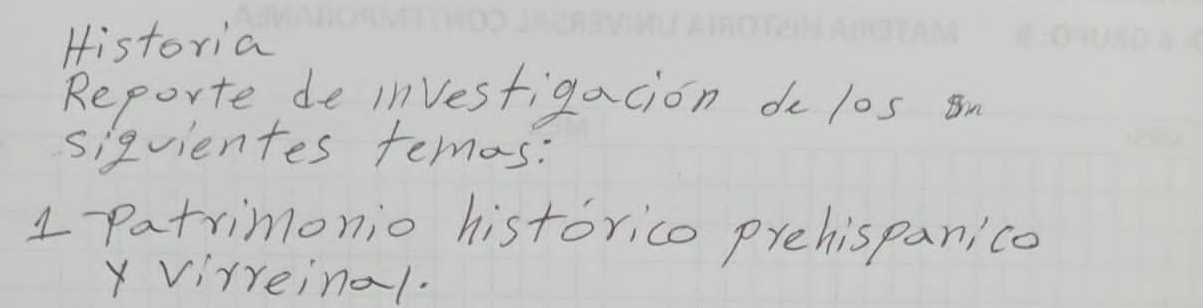 Historia
Reporte de investigación de los
siguientes temas:
1 Patrimonio histórico prehispanico
y virreinal.